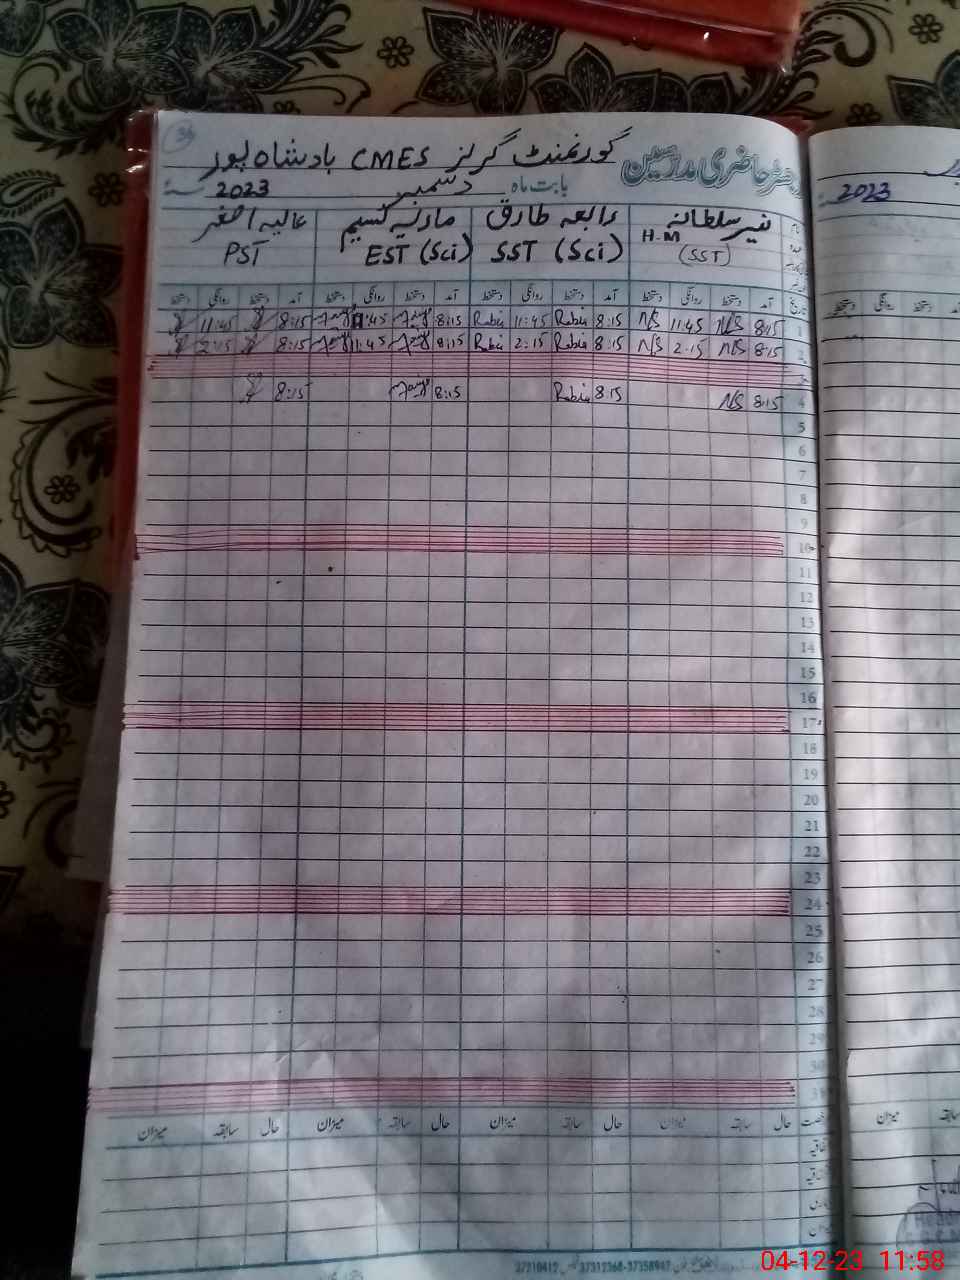 36
رجسٹر حاضری مدرسین گورنمنٹ گرلز CMES بادشاہ پور
بابت ماہ دسمبر 2023
2023
نیر سلطانہ رابعہ طارق عالیہ اصغر
H.M (SST) SST (Sci) EST (Sci) PST
تاریخ آمد دستخط روانگی دستخط آمد دستخط روانگی دستخط آمد دستخط روانگی دستخط آمد دستخط روانگی دستخط
روانگی دستخط
1 8:15 N/S 11:45 N/S 8:15 Rabia 11:45 Rabia 8:15 11:45 8:15 11:45
2 8:15 N/S 2:15 N/S 8:15 Rabia 2:15 Rabia 8:15 11:45 8:15 2:15
4 8:15 N/S 8:15 Rabia 8:15 8:15
5
6
7
8
9
10
11
12
13
14
15
16
17
18
19
20
21
22
23
24
25
26
27
28
29
30
31
حال سابقہ میزان حال سابقہ میزان حال سابقہ میزان حال سابقہ میزان
سابقہ میزان
37210412 37312368-37358947
04-12-23 11:58